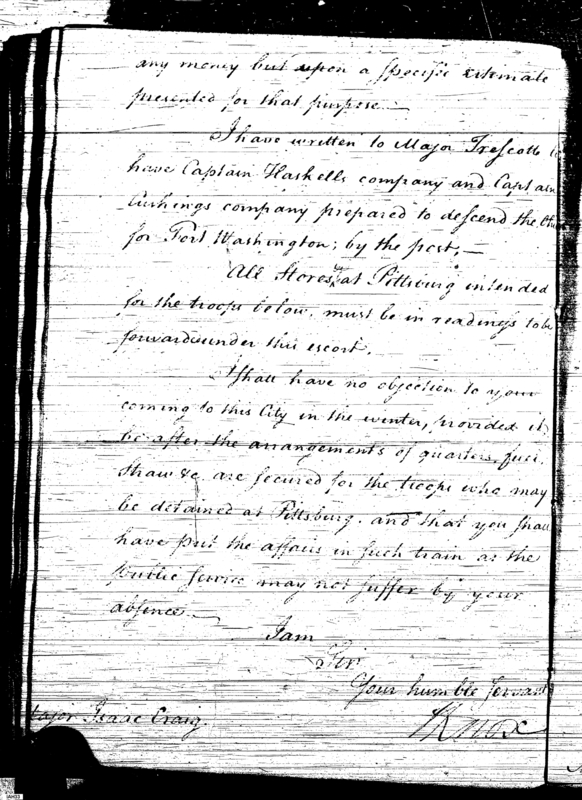 any money but upon a specific estimate
presented for that purpose —
I have written to Major Trescott to
have Captain Haskells company and Captain
Cushings company prepared to descend the Ohio
for Fort Washington; by the post, —
All Stores, at Pittsburg intended
for the troops below, must be in readiness to be
forwarded under this escort.
I shall have no objection to your
coming to this City in the winter, provided it
be after the arrangements of quarters, fuel,
straw &c are secured for the troops who may
be detained at Pittsburg. and that you shall
have put the affairs in such train as the
public service may not suffer by your
absence —
I am
Sir
Your humble Servant
HKnox
Major Isaac Craig